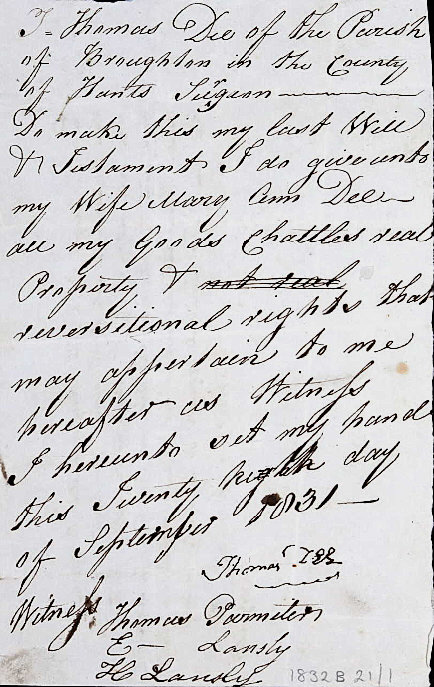 I Thomas Dee of the Parish
of Broughton in the County
of Hants Surgeon
Do make this my last Will
& Testament I do give unto
my Wife Mary Ann Dee
all my Goods Chattles real
Property & not real
reversitional rights that
may appertain to me
hereafter as Witness
I hereunto set my hand
this Twenty eighth day
of September 1831
Thomas Dee
Witness Thomas Parmiter
E Lansly
H Lansly
1832 B 21/1